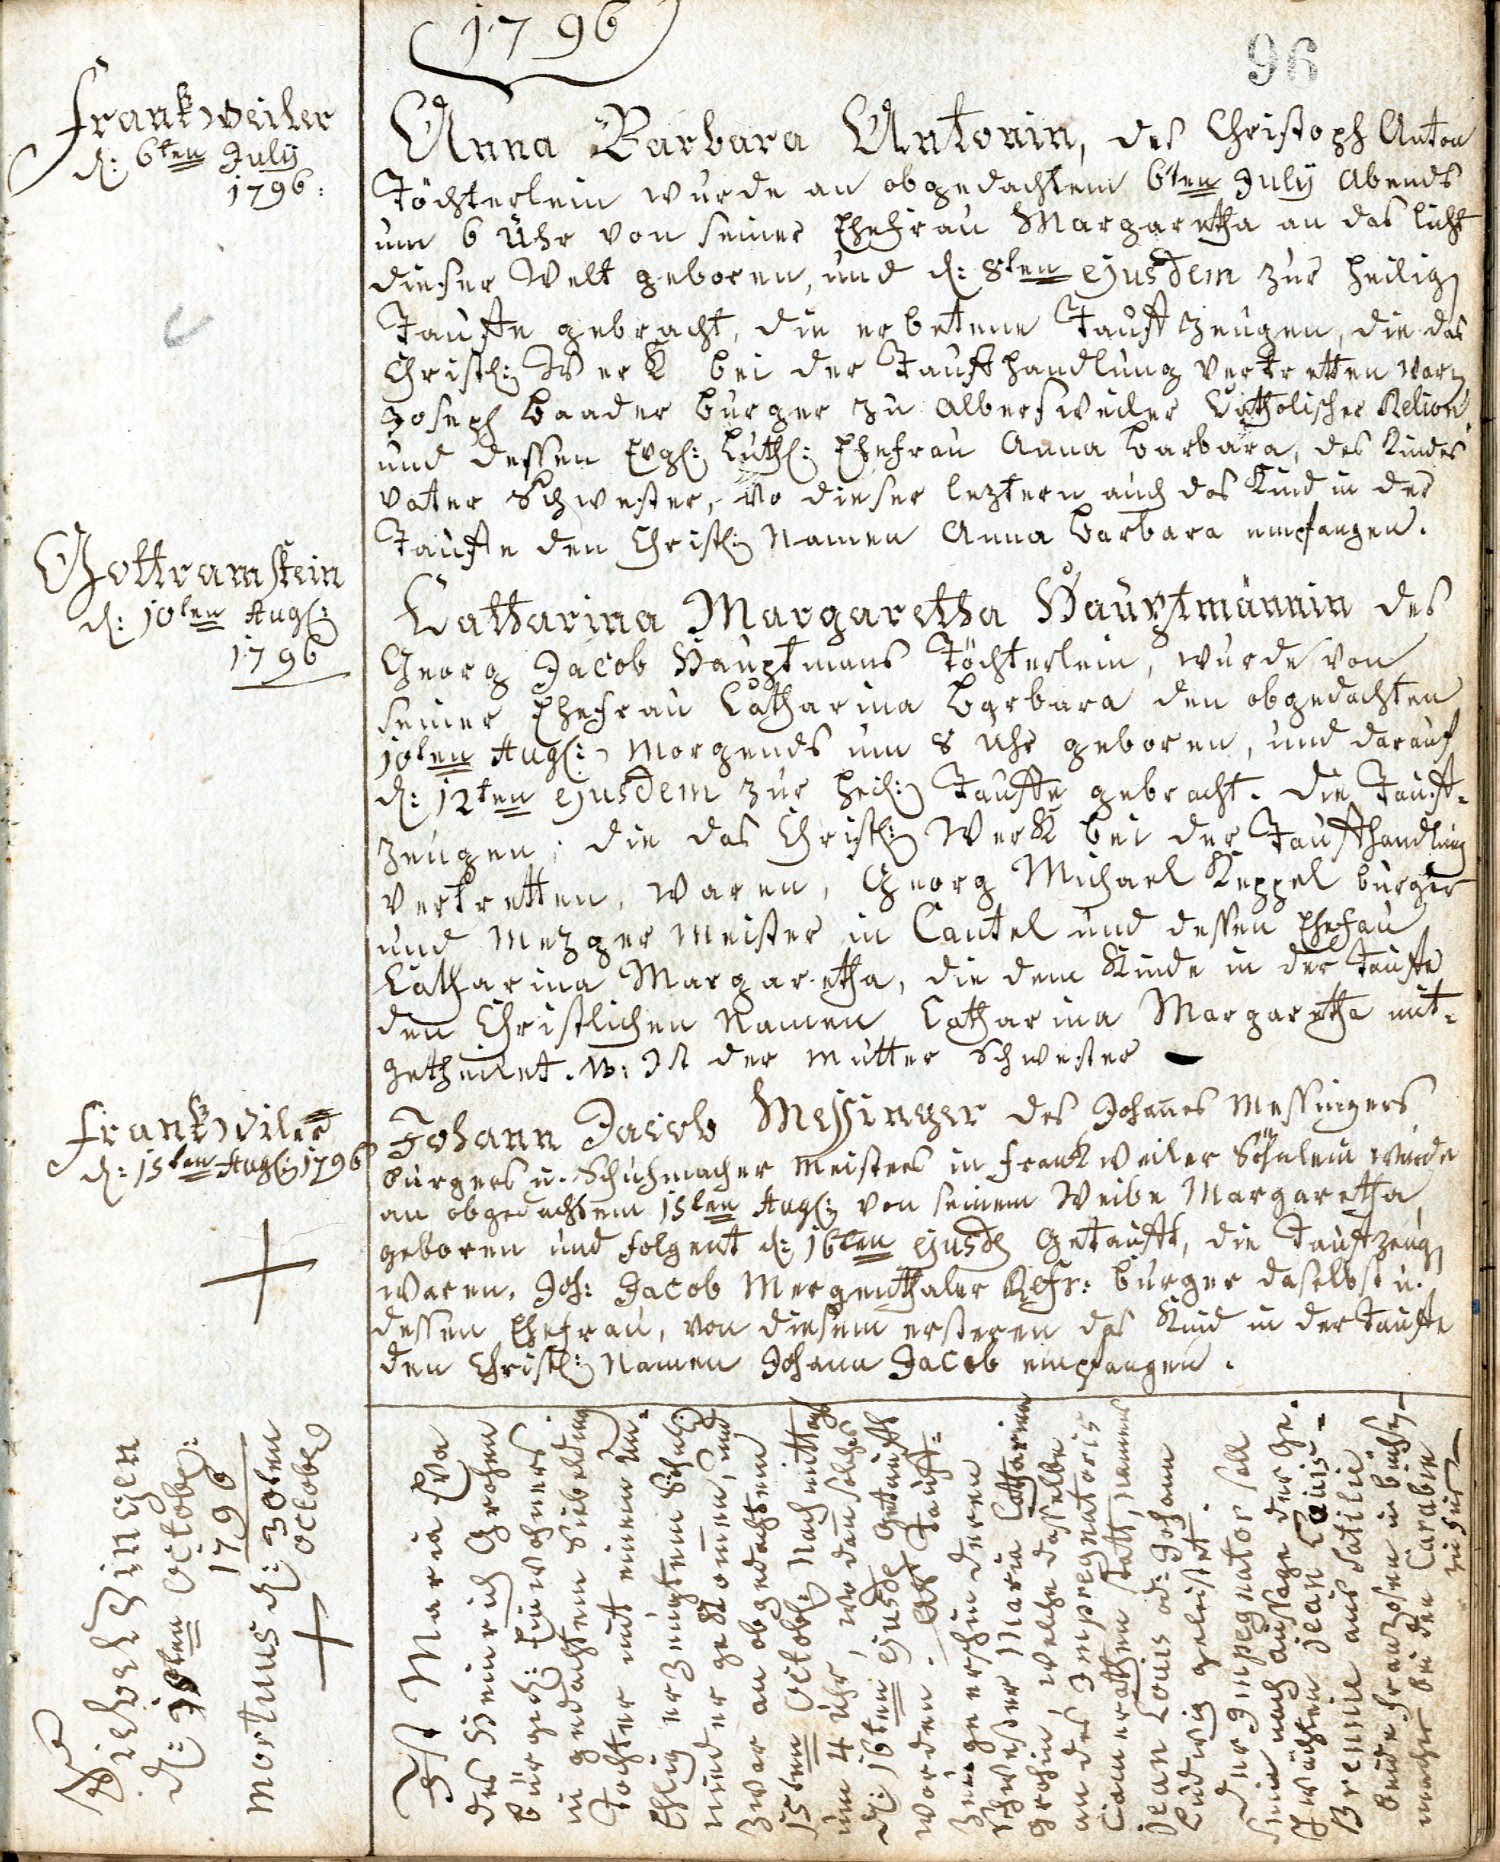 1796
96
Frankweiler
d: 6ten July
1796:
Anna Barbara Antonin, des Christoph Anton
Töchterlein wurde an obgedachtem 6ten July Abends
um 6 Uhr von seiner Ehefrau Margaretha an das licht
dieser Welt geboren, und d: 8ten ejusdem zur heilig
Tauffe gebracht, die erbetene Taufzeugen, die das
Christl: Werk bei der Taufhandlung vertretten war
Joseph Baader burger zu Albersweiler Catholischer Relion
und dessen Evgl: Luthl: Ehefrau Anna Barbara, des Kindes
vater Schwester, wo dieser leztern auch das Kind in der
Tauffe den Christl: Namen Anna Barbara empfangen.
Gottramstein
d: 10ten Aug:
1796
Catharina Margaretha Hauptmännin des
Georg Jacob Hauptmans Töchterlein, wurde von
seiner Ehefrau Catharina Barbara den obgedachten
10ten Aug: Morgends um 8 Uhr geboren, und darauf
d: 12ten ejusdem zur heil: Tauffe gebracht. die Tauf-
zeugen, die das Christl: Werk bei der Taufhandlung
vertretten, waren, Georg Michael Keppel burger
und Mezger Meister in Cantel und dessen Ehefau
Catharina Margaretha, die dem Kinde in der Tauffe
den Christlichen Namen Catharina Margaretha mit-
getheilet. der Mutter Schwester
Frankwiler
d: 15ten Aug: 1796
Johann Jacob Messinger des Johannes Messingers
burgers u. Schuhmacher Meisters in Frankweiler Söhnlein wurde
an obgedachtem 15ten Aug: von seinem Weibe Margaretha
geboren und folgent d: 16ten ejusd Getauft, die Taufzeug
waren, Joh: Jacob Mergenthaler Refr: burger daselbst u.
dessen Ehefrau, von diesem ersteren das Kind in der Tauffe
den Christl: Namen Johann Jacob empfangen.
d: 15ten Octobr:
1796
mortuus d: 30ten
Octobr
Ist Maria Eva
des Heinrich Grohen
bürger: Einwohners
in gedachtem Siebeldingen
Tochter mit einem Un-
Ehlig erzeugtem
nieder gekommen, und
zwar an obgedachtem
15ten Octobr: Nachmittag
um 4 Uhr, und dann solches
d: 16ten ejusd getauft
worden. Als Tauf-
zeuge erschien deren
Schwester Maria Catharina
Grohin, welche dasselbe
an des Impregnatoris
Cameraten statt, namens
Jean Louis od: Johann
Ludwig geleistet.
Der Impregnator soll
sein nach aussage der Ge-
schwächten Jean Louis
Brennie aus
beide Franzosen
macher bei den Carabin